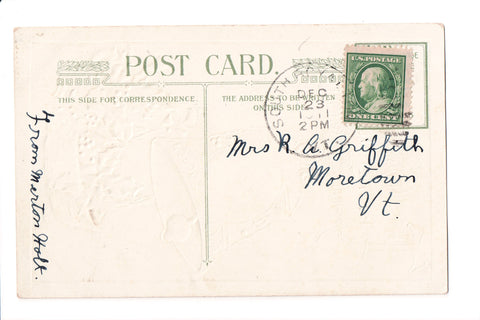 POST CARD.
THIS SIDE FOR CORRESPONDENCE.
THE ADDRESS TO BE WRITTEN
ON THIS SIDE.
U.S. POSTAGE
ONE CENT
SOUTH
DEC
23
1911
2 PM
VT.
Mrs R. A. Griffith
Moretown
Vt.
From Merton Holt.